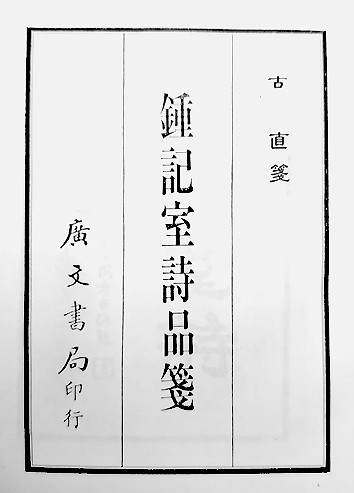 古直箋
鍾記室詩品箋
廣文書局印行